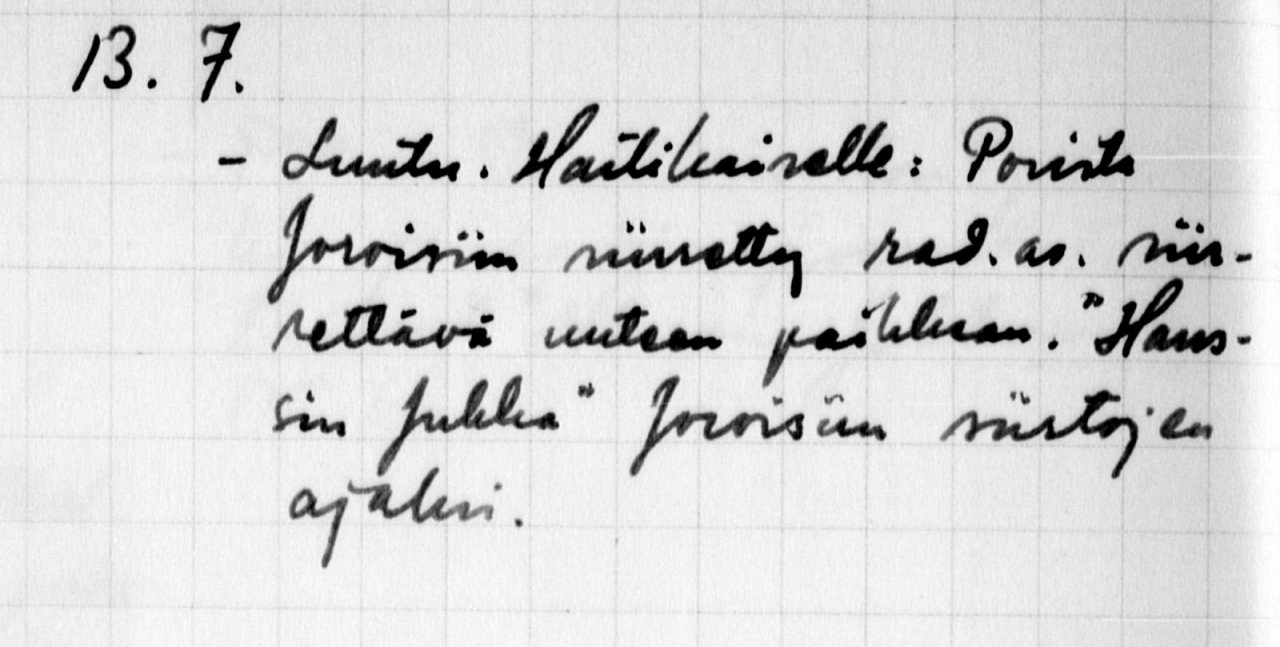 13. 7.
- Luutn. Hartikaiselle: Porista
Joroisiin siirretty rad. as. siir-
rettävä uuteen paikkaan. "Hans-
sin Jukka" Joroisiin siirtojen
ajaksi.